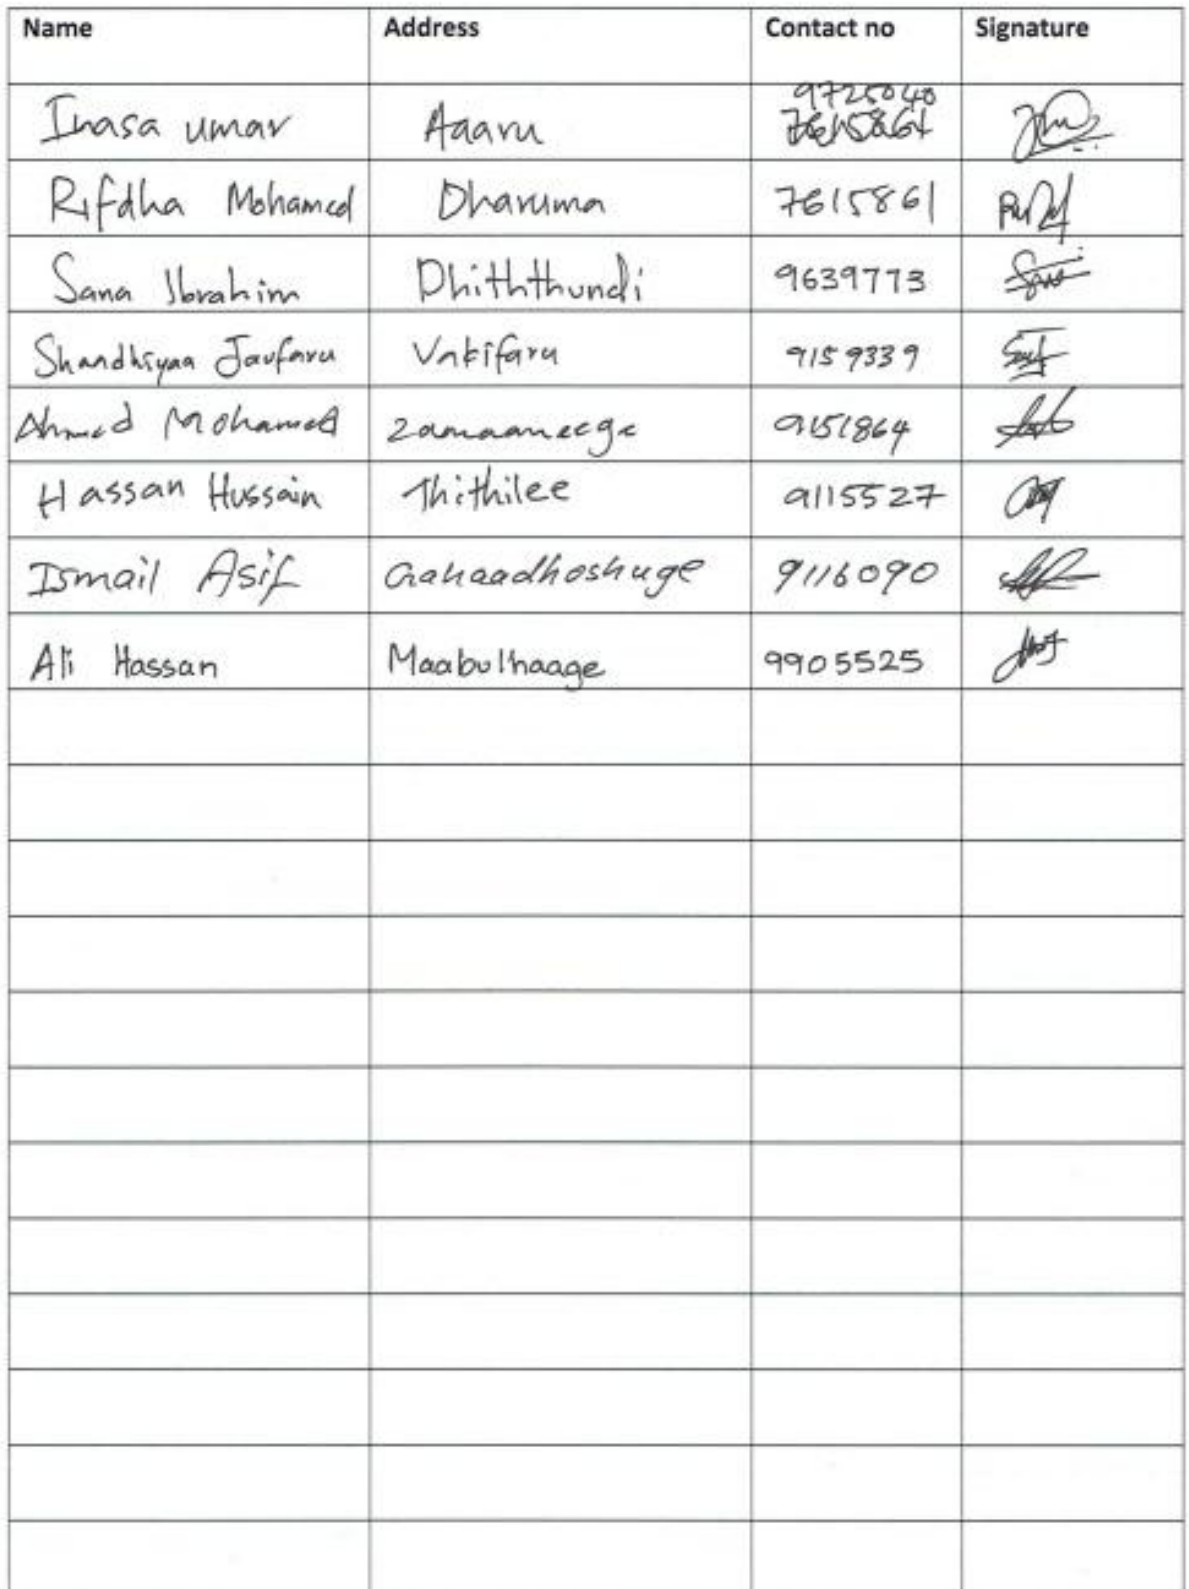 Name Address Contact no Signature
9725040
Inasa umar Aaaru 7615861
Rifdha Mohamed Dharuma 7615861
Sana Ibrahim Dhiththundi 9639773
Shandhiyaa Jaufaru Vakifaru 9159339
Ahmed Mohamed Zamaaneege 9151864
Hassan Hussain Thithilee 9115527
Ismail Asif Gahaadhoshuge 9116090
Ali Hassan Maabulhaage 9905525